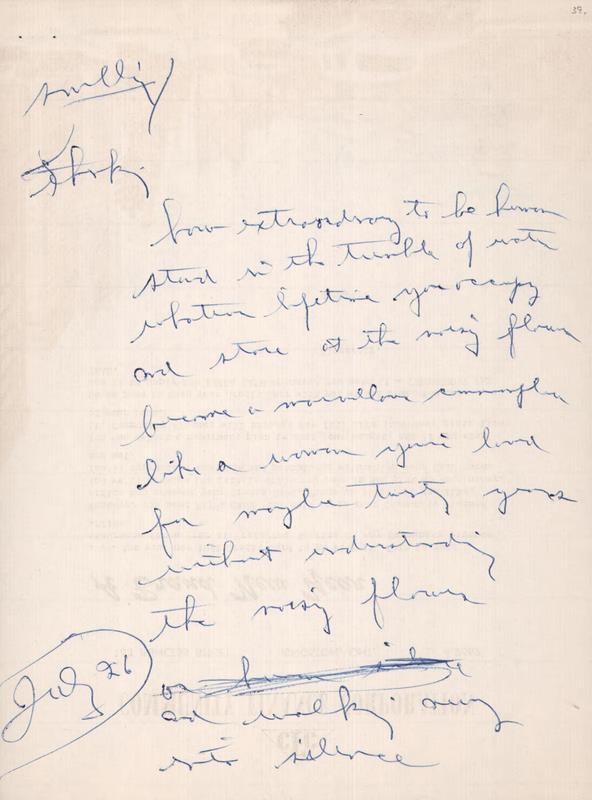 39.
how extraordinary to be human
stand in the tumble of water
whatever lifetime you occupy
and stare at the noisy flowers
become a marvellous
like a woman you've loved
for maybe twenty years
without understanding
the noisy flowers
July 26
and walking away
into silence